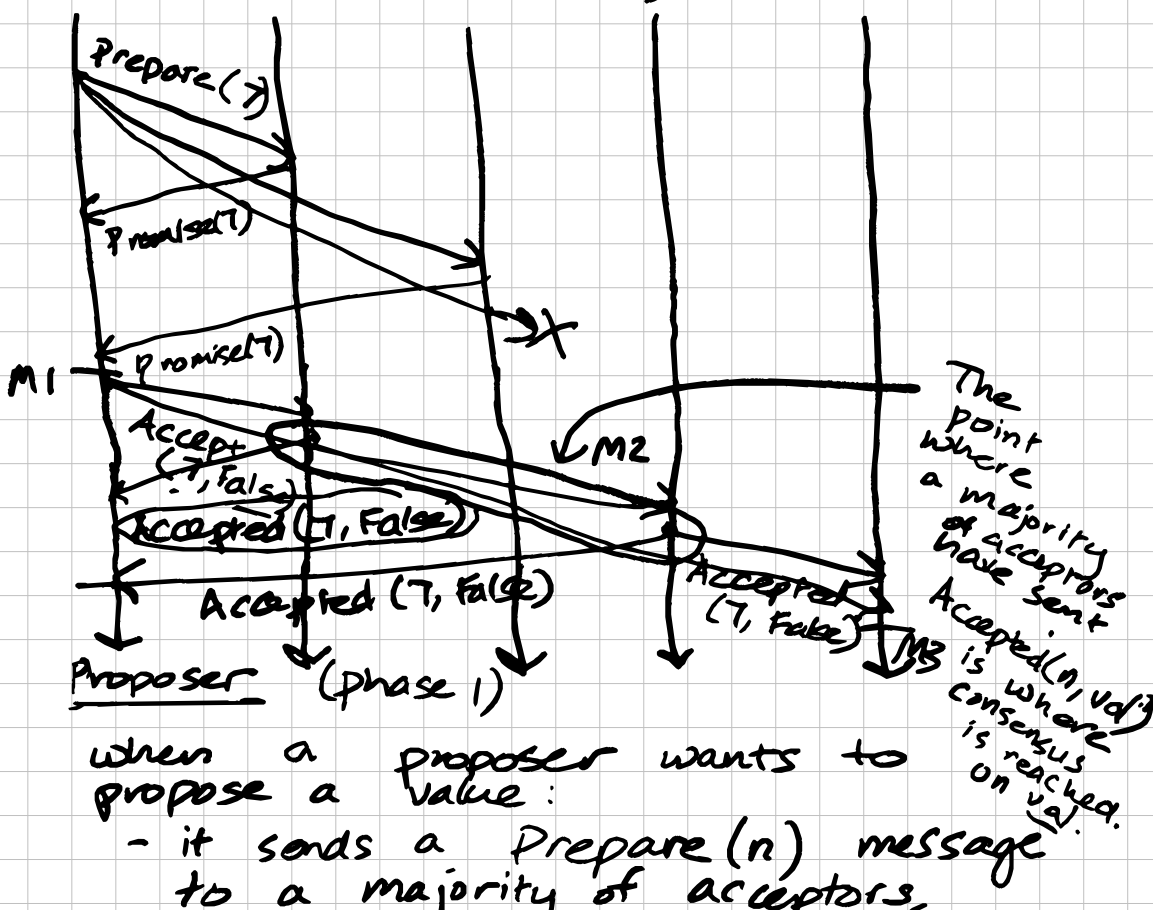 Prepare(7)
Promise(7)
Promise(7)
M1
Accept
(7, False)
M2
Accepted (7, False)
Accepted (7, False)
Accepted
(7, False)
M3
The
point
where
a majority
of acceptors
have sent
Accepted(n, val)
is where
consensus
is reached
on val.
Proposer (phase 1)
when a proposer wants to
propose a value:
- it sends a Prepare (n) message
to a majority of acceptors,